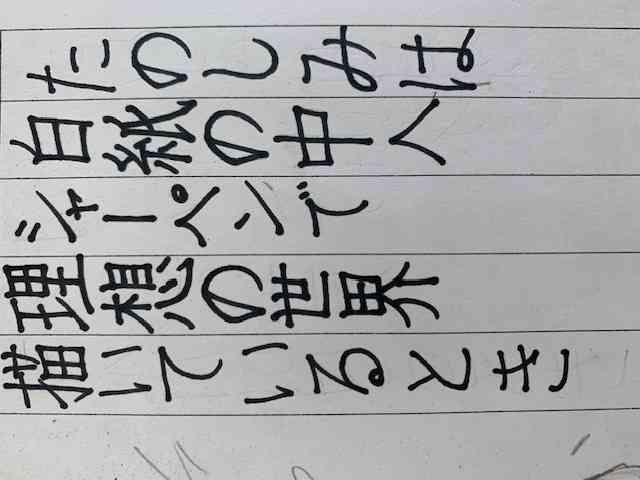 たのしみは
白紙の中へ
シャーペンで
理想の世界
描いているとき